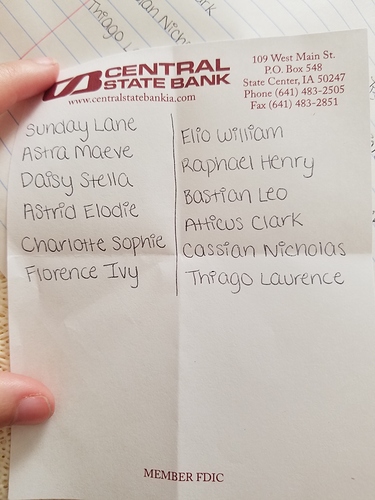 CENTRAL
STATE BANK
www.centralstatebankia.com
109 West Main St.
P.O. Box 548
State Center, IA 50247
Phone (641) 483-2505
Fax (641) 483-2851
Sunday Lane
Astra Maeve
Daisy Stella
Astrid Elodie
Charlotte Sophie
Florence Ivy
Elio William
Raphael Henry
Bastian Leo
Atticus Clark
Cassian Nicholas
Thiago Laurence
MEMBER FDIC